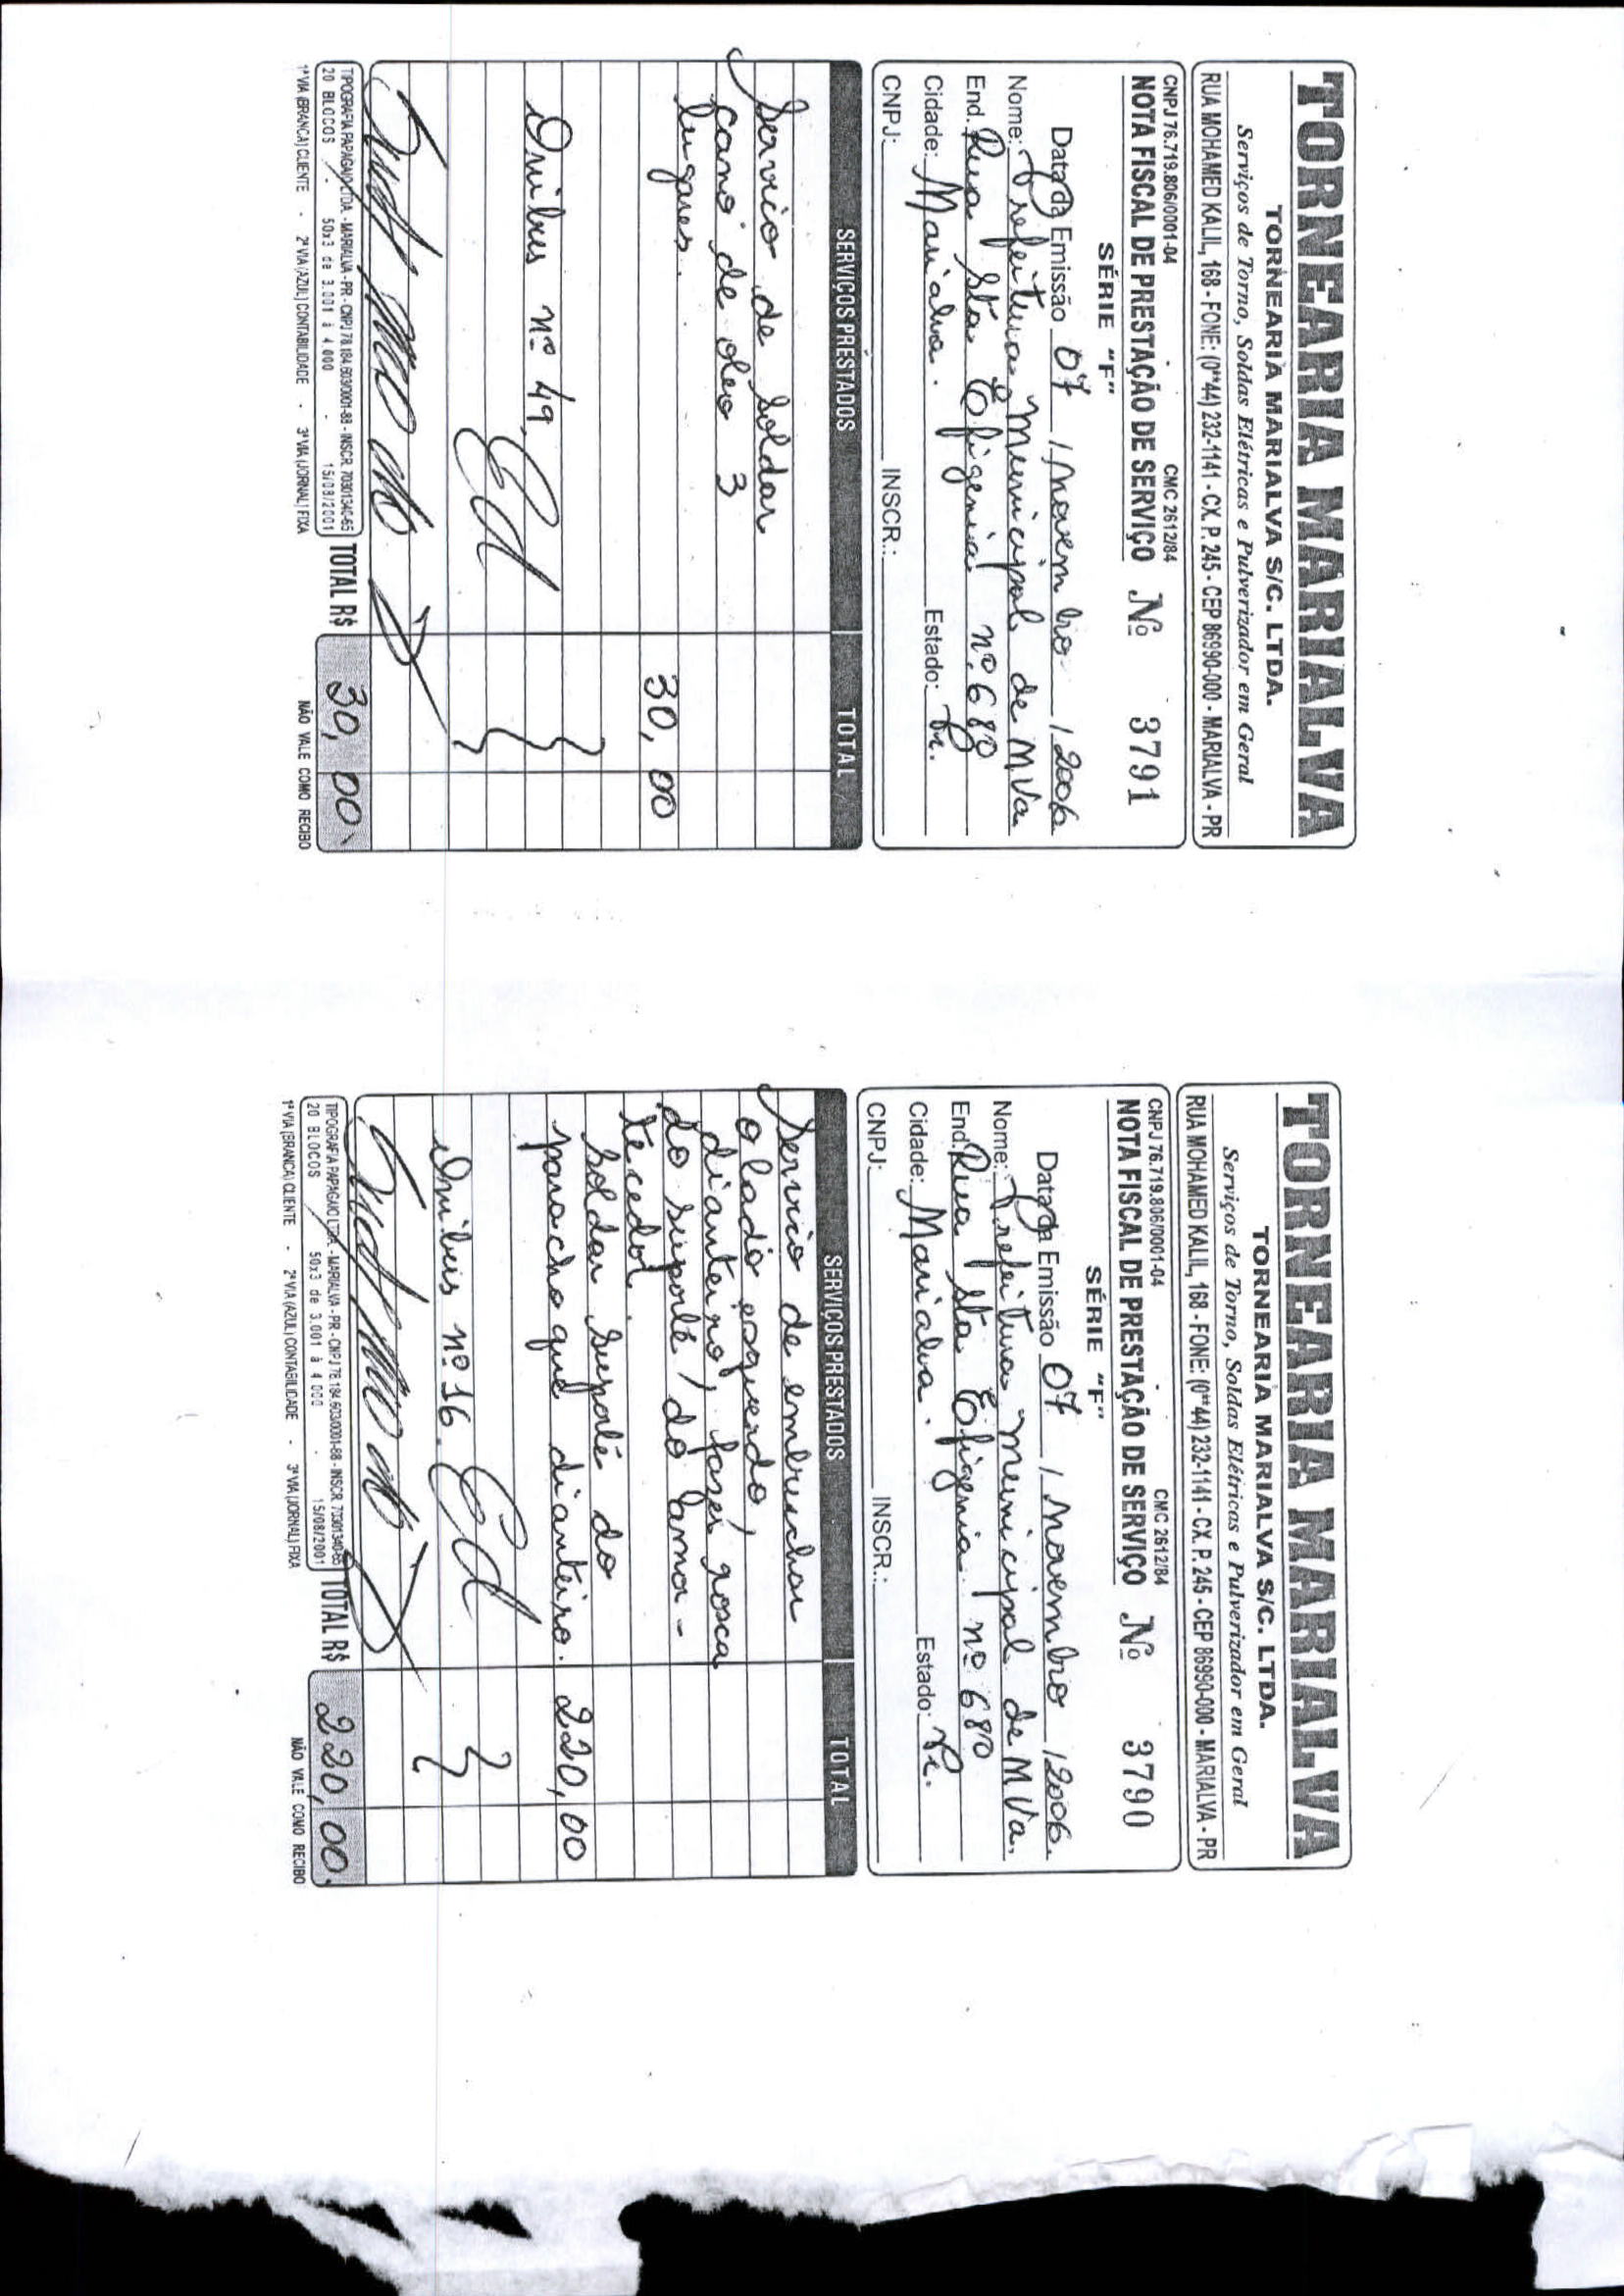 TORNEARIA MARIALVA
TORNEARIA MARIALVA S/C. LTDA.
Serviços de Torno, Soldas Elétricas e Pulverizador em Geral
RUA MOHAMED KALIL, 168 - FONE: (0**44) 232-1141 - CX. P. 245 - CEP 86990-000 - MARIALVA - PR
CNPJ 76.719.806/0001-04 CMC 2612/84
NOTA FISCAL DE PRESTAÇÃO DE SERVIÇO Nº 3791
SÉRIE "F"
Data da Emissão 07 / Novembro / 2006
Nome: Prefeitura Municipal de M Va
End. Rua Sta Efigenia nº 680
Cidade: Marialva. Estado: Pr.
CNPJ: INSCR.:
SERVIÇOS PRESTADOS TOTAL
Servico de soldar
cano de oleo 3
lugares. 30,00
Onibus nº 49.
TIPOGRAFIA PAPAGAIO LTDA - MARIALVA - PR - CNPJ 78.184.603/0001-88 - INSCR. 70301340-65
20 BLOCOS - 50x3 de 3.001 à 4.000 - 15/08/2001
TOTAL R$ 30,00
1ª VIA (BRANCA) CLIENTE - 2ª VIA (AZUL) CONTABILIDADE - 3ª VIA (JORNAL) FIXA NÃO VALE COMO RECIBO
TORNEARIA MARIALVA
TORNEARIA MARIALVA S/C. LTDA.
Serviços de Torno, Soldas Elétricas e Pulverizador em Geral
RUA MOHAMED KALIL, 168 - FONE: (0**44) 232-1141 - CX. P. 245 - CEP 86990-000 - MARIALVA - PR
CNPJ 76.719.806/0001-04 CMC 2612/84
NOTA FISCAL DE PRESTAÇÃO DE SERVIÇO Nº 3790
SÉRIE "F"
Data da Emissão 07 / Novembro / 2006.
Nome: Prefeitura Municipal de M Va.
End. Rua Sta Efigenia nº 680
Cidade: Marialva. Estado: Pr.
CNPJ: INSCR.:
SERVIÇOS PRESTADOS TOTAL
Servico de embruchar
o lado esquerdo,
dianteiro, faser rosca
do suporte do amor-
tecedor.
soldar suporte do
parachoque dianteiro. 220,00
Onibus nº 16.
TIPOGRAFIA PAPAGAIO LTDA. - MARIALVA - PR - CNPJ 78.184.603/0001-88 - INSCR. 70301340-65
20 BLOCOS 50x3 de 3.001 à 4.000 - 15/08/2001
TOTAL R$ 220,00.
1ª VIA (BRANCA) CLIENTE - 2ª VIA (AZUL) CONTABILIDADE - 3ª VIA (JORNAL) FIXA NÃO VALE COMO RECIBO